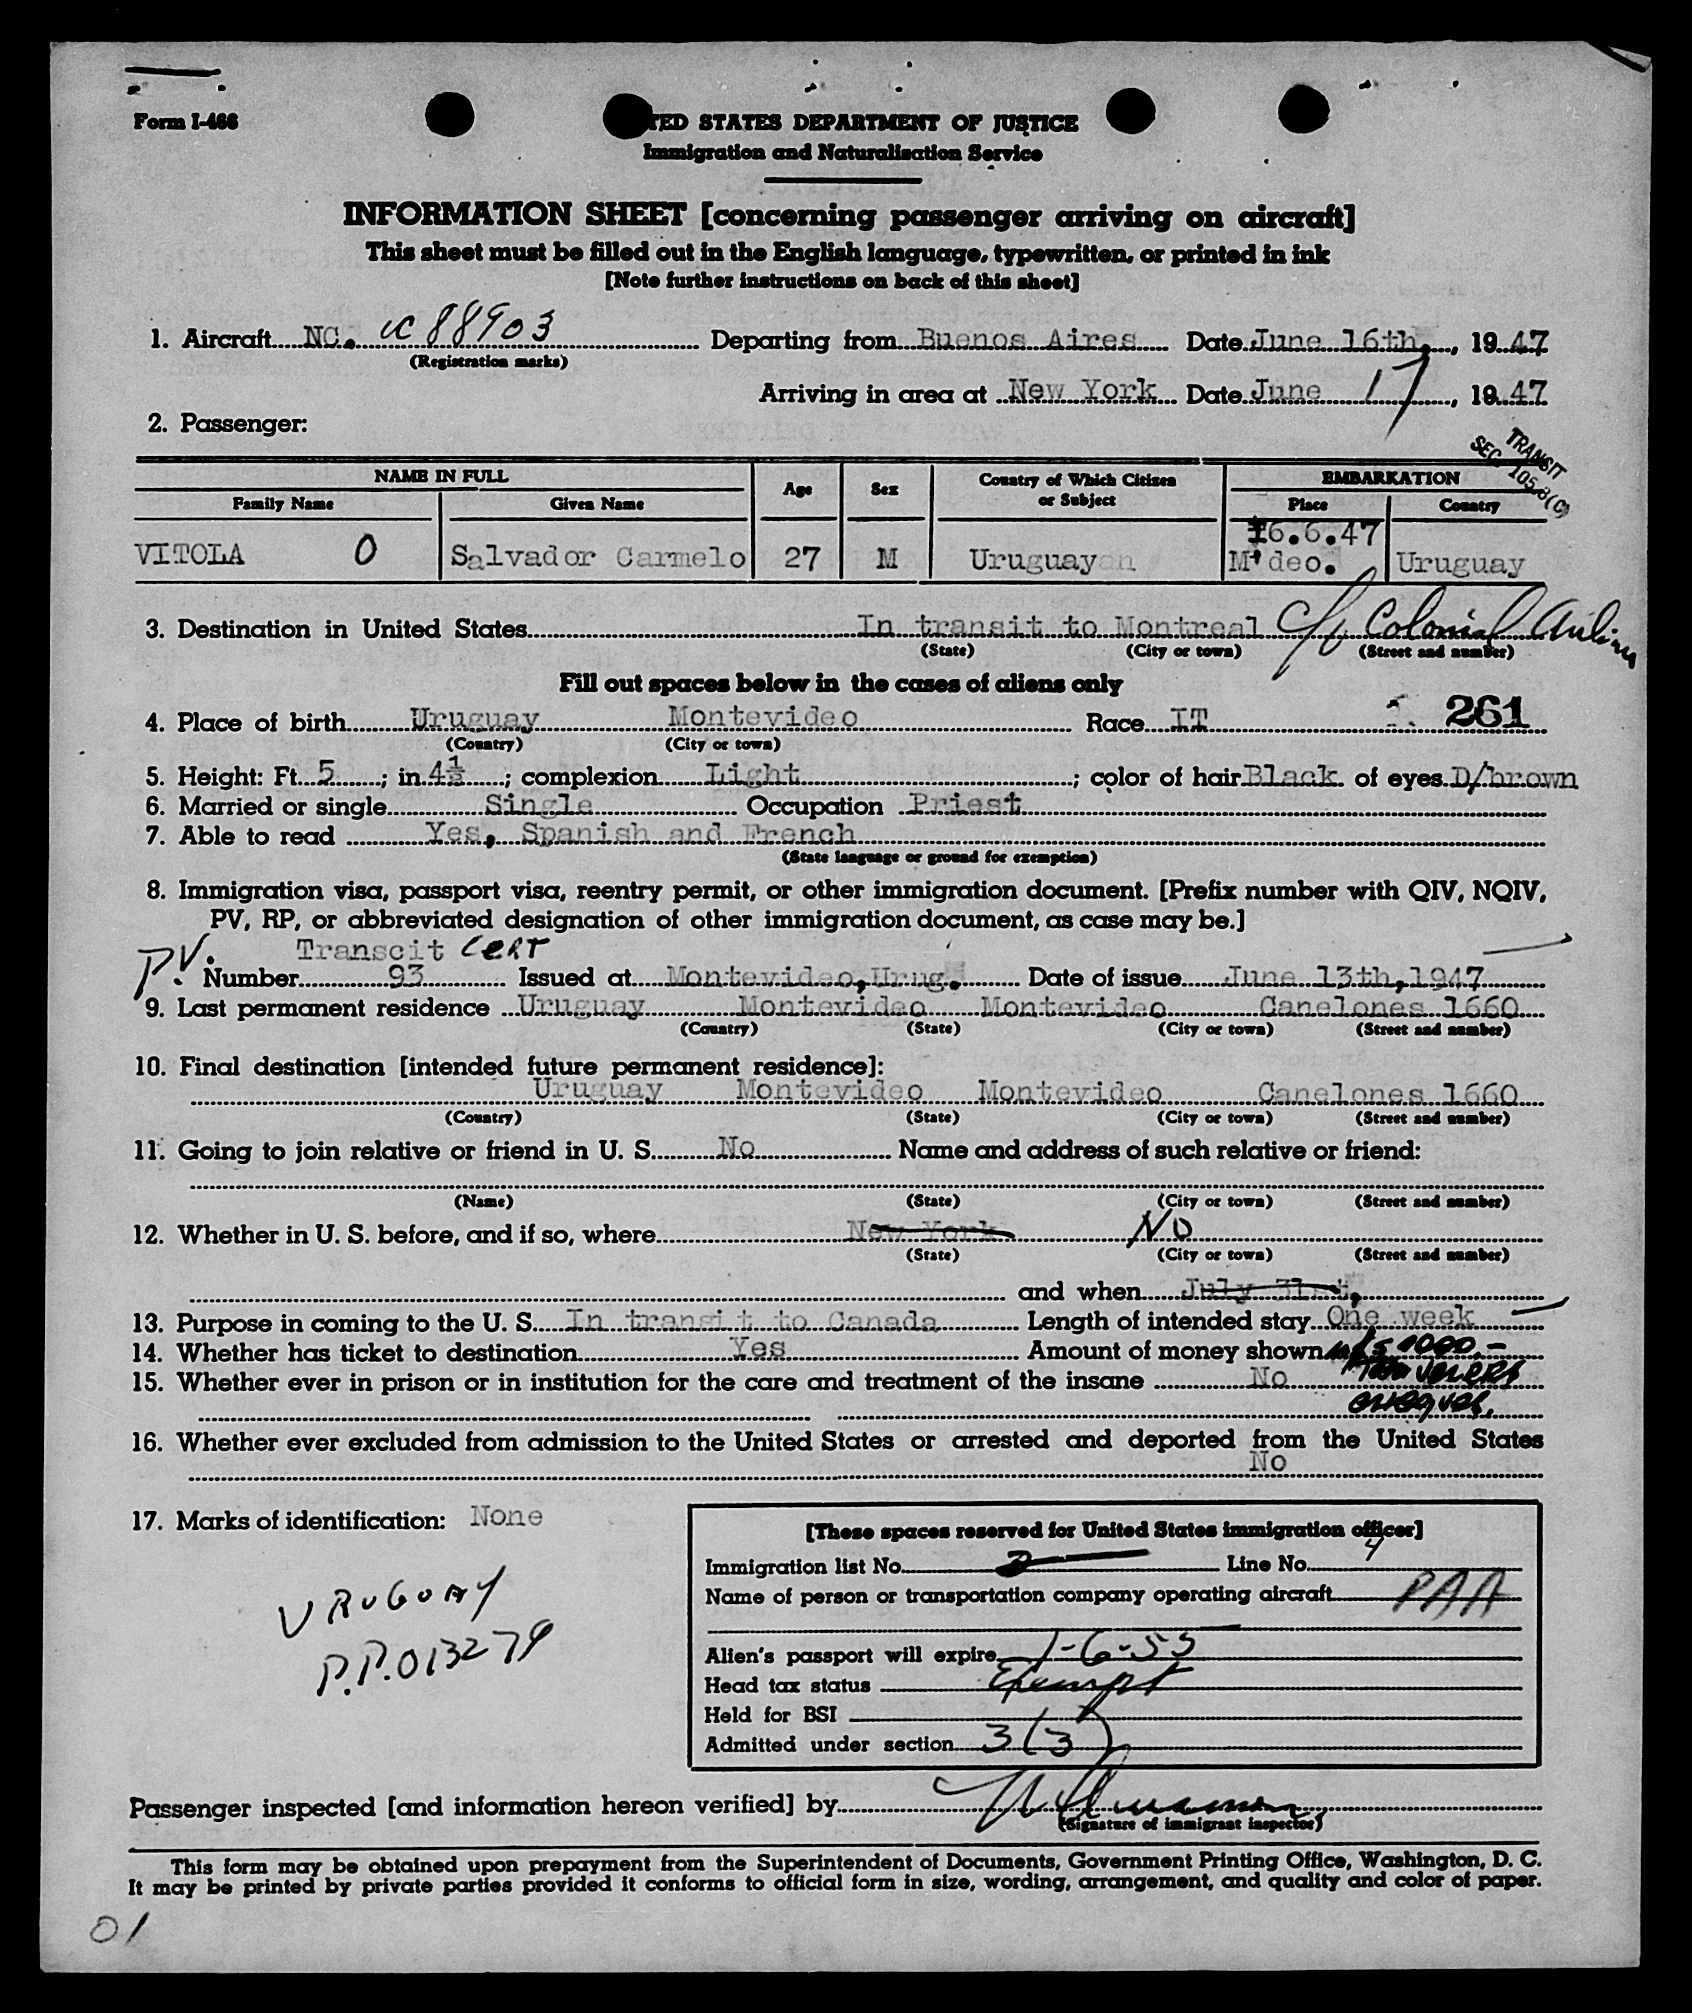 Form I-466
TED STATES DEPARTMENT OF JUSTICE
Immigration and Naturalization Service
INFORMATION SHEET [concerning passenger arriving on aircraft]
This sheet must be filled out in the English language, typewritten, or printed in ink
[Note further instructions on back of this sheet]
1. Aircraft NC. NC 88903 Departing from Buenos Aires Date June 16th, 1947
(Registration marks)
Arriving in area at New York Date June 17, 1947
2. Passenger:
TRANSIT
SEC. 105.3(C)
NAME IN FULL Age Sex Country of Which Citizen or Subject EMBARKATION
Family Name Given Name Place Country
16.6.47
VITOLA O Salvador Carmelo 27 M Uruguayan M'deo. Uruguay
3. Destination in United States In transit to Montreal c/o Colonial Airlines
(State) (City or town) (Street and number)
Fill out spaces below in the cases of aliens only
4. Place of birth Uruguay Montevideo Race IT 261
(Country) (City or town)
5. Height: Ft. 5; in. 4½; complexion Light; color of hair Black of eyes D/brown
6. Married or single Single Occupation Priest
7. Able to read Yes, Spanish and French
(State language or ground for exemption)
8. Immigration visa, passport visa, reentry permit, or other immigration document. [Prefix number with QIV, NQIV,
PV, RP, or abbreviated designation of other immigration document, as case may be.]
P.V. Transcit CERT
Number 93 Issued at Montevideo, Urug. Date of issue June 13th, 1947
9. Last permanent residence Uruguay Montevideo Montevideo Canelones 1660
(Country) (State) (City or town) (Street and number)
10. Final destination [intended future permanent residence]:
Uruguay Montevideo Montevideo Canelones 1660
(Country) (State) (City or town) (Street and number)
11. Going to join relative or friend in U. S. No Name and address of such relative or friend:
(Name) (State) (City or town) (Street and number)
12. Whether in U. S. before, and if so, where New York NO
(State) (City or town) (Street and number)
and when July 31st,
13. Purpose in coming to the U. S. In transit to Canada Length of intended stay One week
14. Whether has ticket to destination Yes Amount of money shown 1000.-
15. Whether ever in prison or in institution for the care and treatment of the insane No
16. Whether ever excluded from admission to the United States or arrested and deported from the United States
No
17. Marks of identification: None
URUGUAY
P.P. 013279
[These spaces reserved for United States immigration officer]
Immigration list No. Line No. 4
Name of person or transportation company operating aircraft PAA
Alien's passport will expire 1-6-55
Head tax status Exempt
Held for BSI
Admitted under section 3(3)
Passenger inspected [and information hereon verified] by
(Signature of immigrant inspector)
This form may be obtained upon prepayment from the Superintendent of Documents, Government Printing Office, Washington, D. C.
It may be printed by private parties provided it conforms to official form in size, wording, arrangement, and quality and color of paper.
01